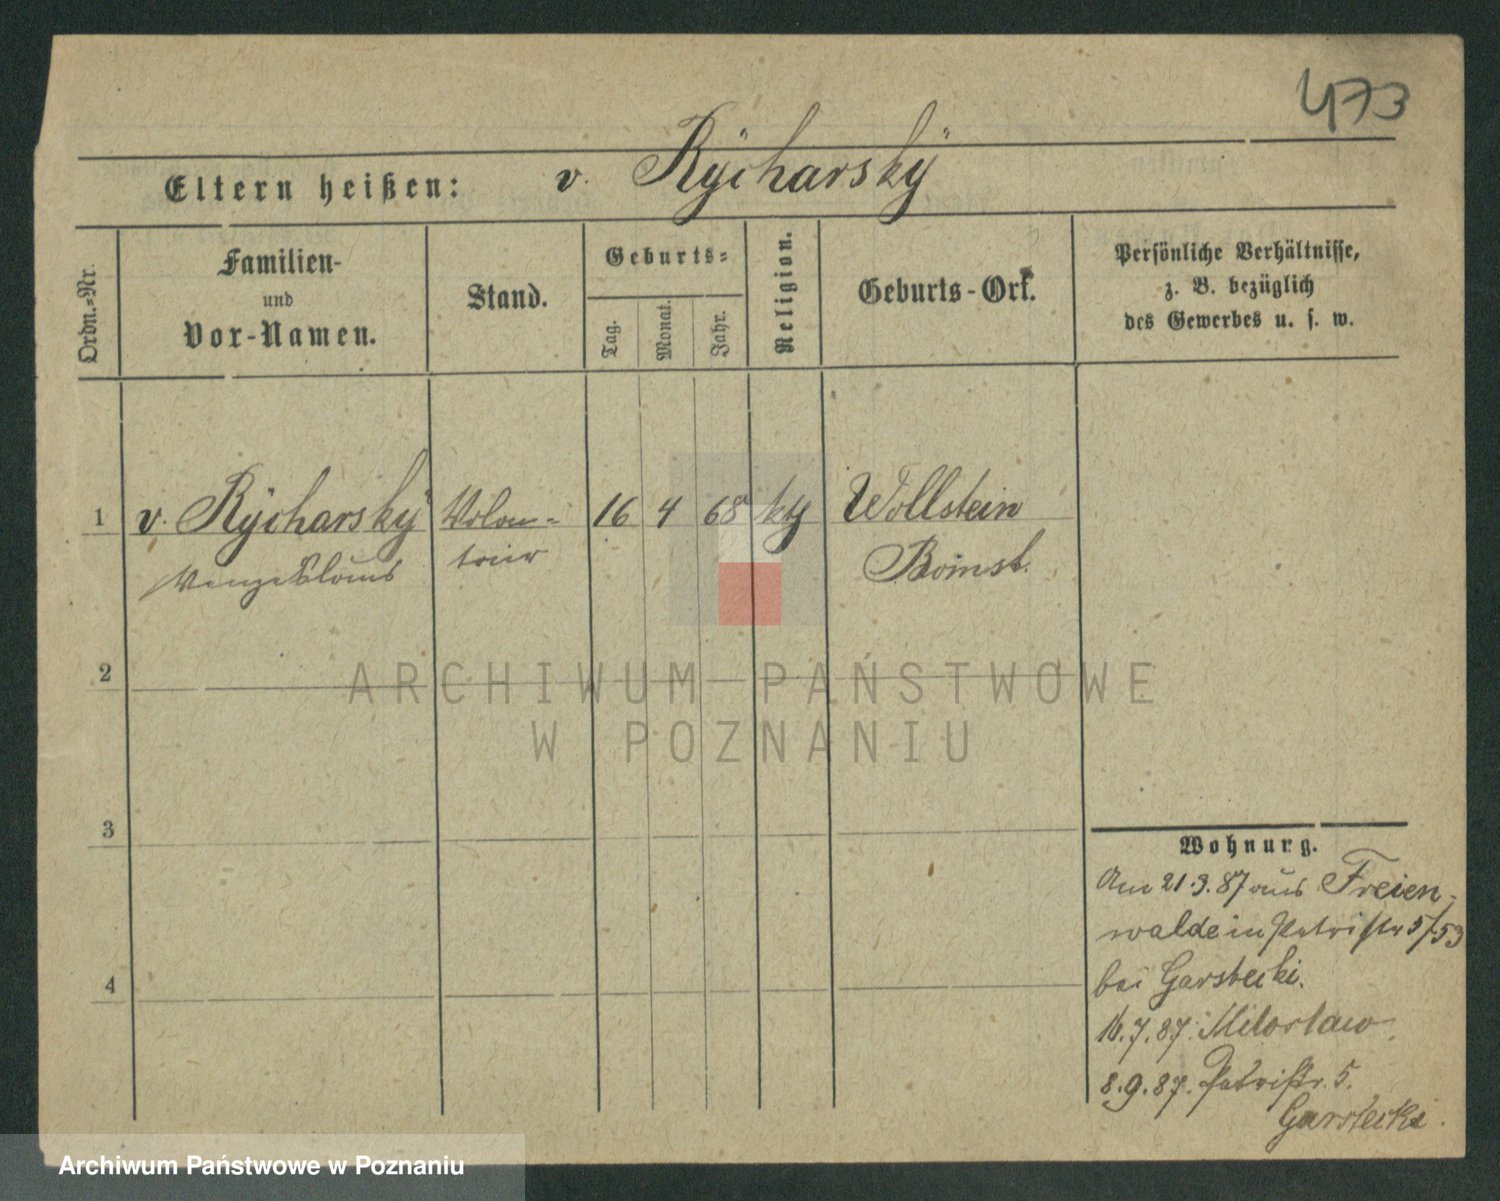 473
Eltern heißen: v. Rÿcharskÿ
Ordn.-Nr.
Familien-
und
Vor-Namen.
Stand.
Geburts-
Tag.
Monat.
Jahr.
Religion.
Geburts-Ort.
Persönliche Verhältnisse,
z. B. bezüglich
des Gewerbes u. s. w.
1 v. Rÿcharskÿ Volon- 16 4 68 kth Wollstein
Venzeslaus trier Bomst.
2
ARCHIWUM PAŃSTWOWE
W POZNANIU
3
4
Wohnung.
Am 21.3.87 aus Freien-
walde in Petristr 5/53
bei Garstecki.
16.7.87. Miloslaw
8.9.87. Petristr. 5.
Garstecki.
Archiwum Państwowe w Poznaniu